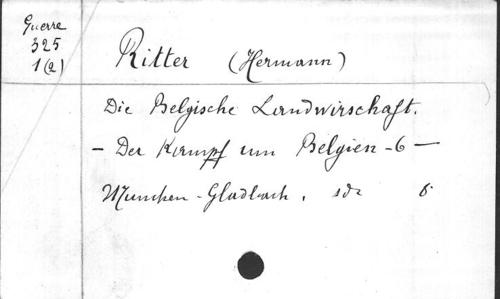 Guerre
325
1(2)
Ritter (Hermann)
Die Belgische Landwirschaft.
- Der Kampf um Belgien - 6 -
Munchen - Gladbach, sd